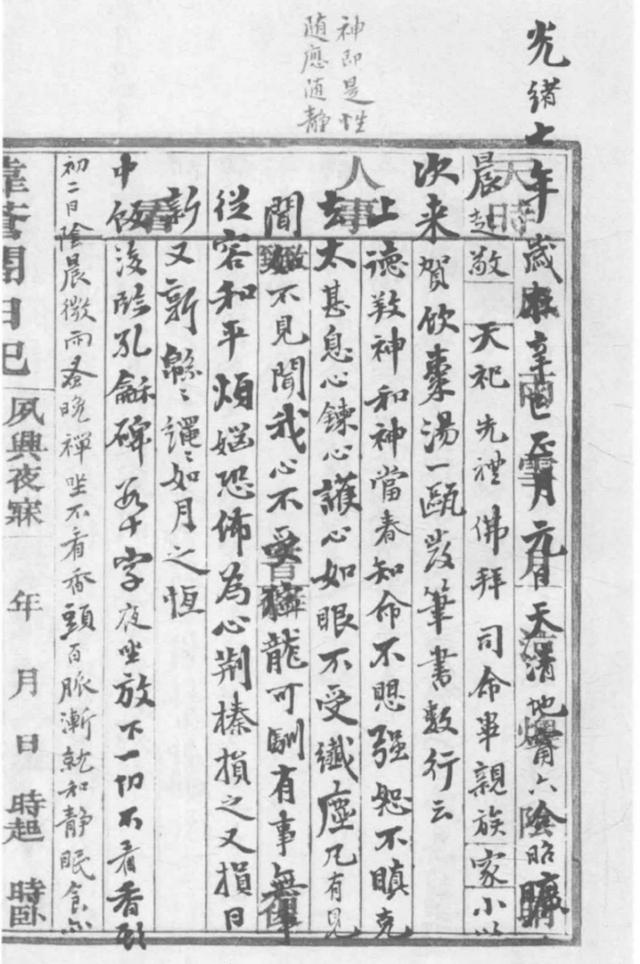 神即是性
随應随静
光緒七年歲在辛巳正月元日天清地甯六陰昭曠
晨起敬天祀先禮佛拜司命畢親族家小以
次来賀飲棗湯一甌發筆書數行云
上徳敦神和神當春知命不愳强恕不瞋克
去太甚息心鍊心護心如眼不受纖塵凡有見
聞如不見聞我心不受獰龍可馴有事無事
從容和平煩惱恐怖為心荆榛損之又損日
新又新緜緜繩繩如月之恆
中飯後臨孔龢碑若干字夜坐放下一切不看香頭
初二日陰晨微雨蚤晚禪坐不看香頭百脈漸就和静眠食亦
葊閒日記 夙興夜寐 年 月 日 時起 時臥
天時
人事